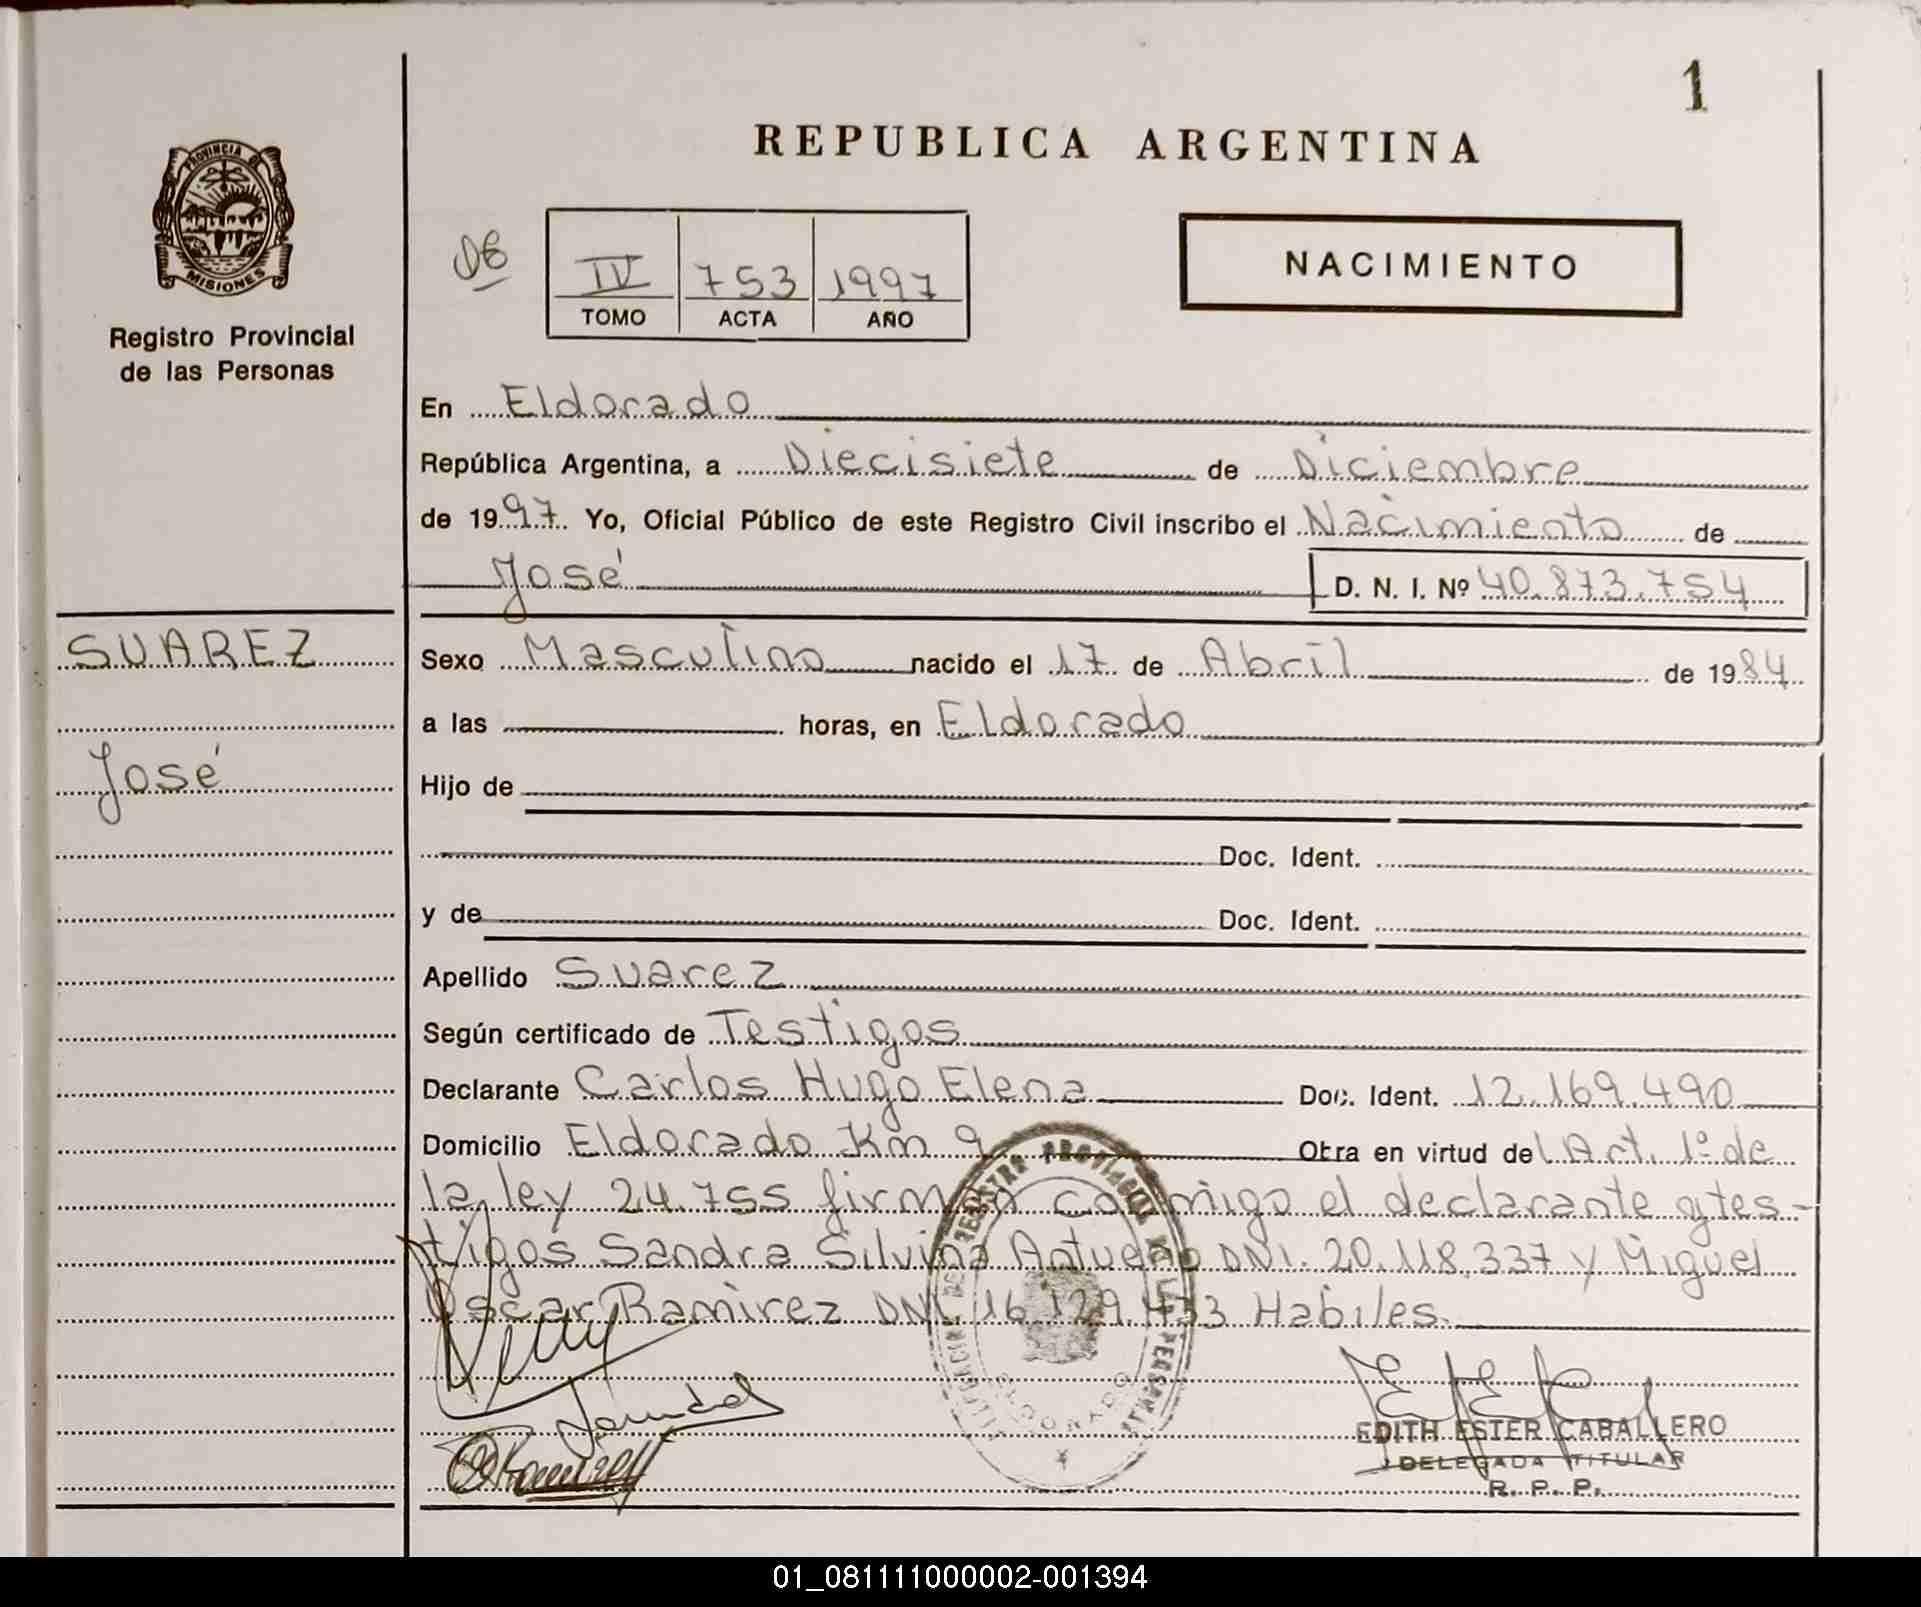 1
REPUBLICA ARGENTINA
PROVINCIA DE
MISIONES
Registro Provincial
de las Personas
IV 753 1997
TOMO ACTA AÑO
NACIMIENTO
En Eldorado
República Argentina, a Diecisiete de Diciembre
de 1997. Yo, Oficial Público de este Registro Civil inscribo el Nacimiento de
José D. N. I. Nº 40.873.754
SUAREZ
José
Sexo Masculino nacido el 17 de Abril de 1984
a las horas, en Eldorado
Hijo de
Doc. Ident.
y de Doc. Ident.
Apellido Suarez
Según certificado de Testigos
Declarante Carlos Hugo Elena Doc. Ident. 12.169.490
Domicilio Eldorado Km 9 Obra en virtud del Art. 1º de
la ley 24.755 firman conmigo el declarante y tes-
tigos Sandra Silvina DNI. 20.118.337 y Miguel
Oscar Ramirez DNI. Habiles.
REGISTRO PROVINCIAL DE LAS PERSONAS
ELDORADO
EDITH ESTER CABALLERO
DELEGADA TITULAR
R. P. P.
01_081111000002-001394